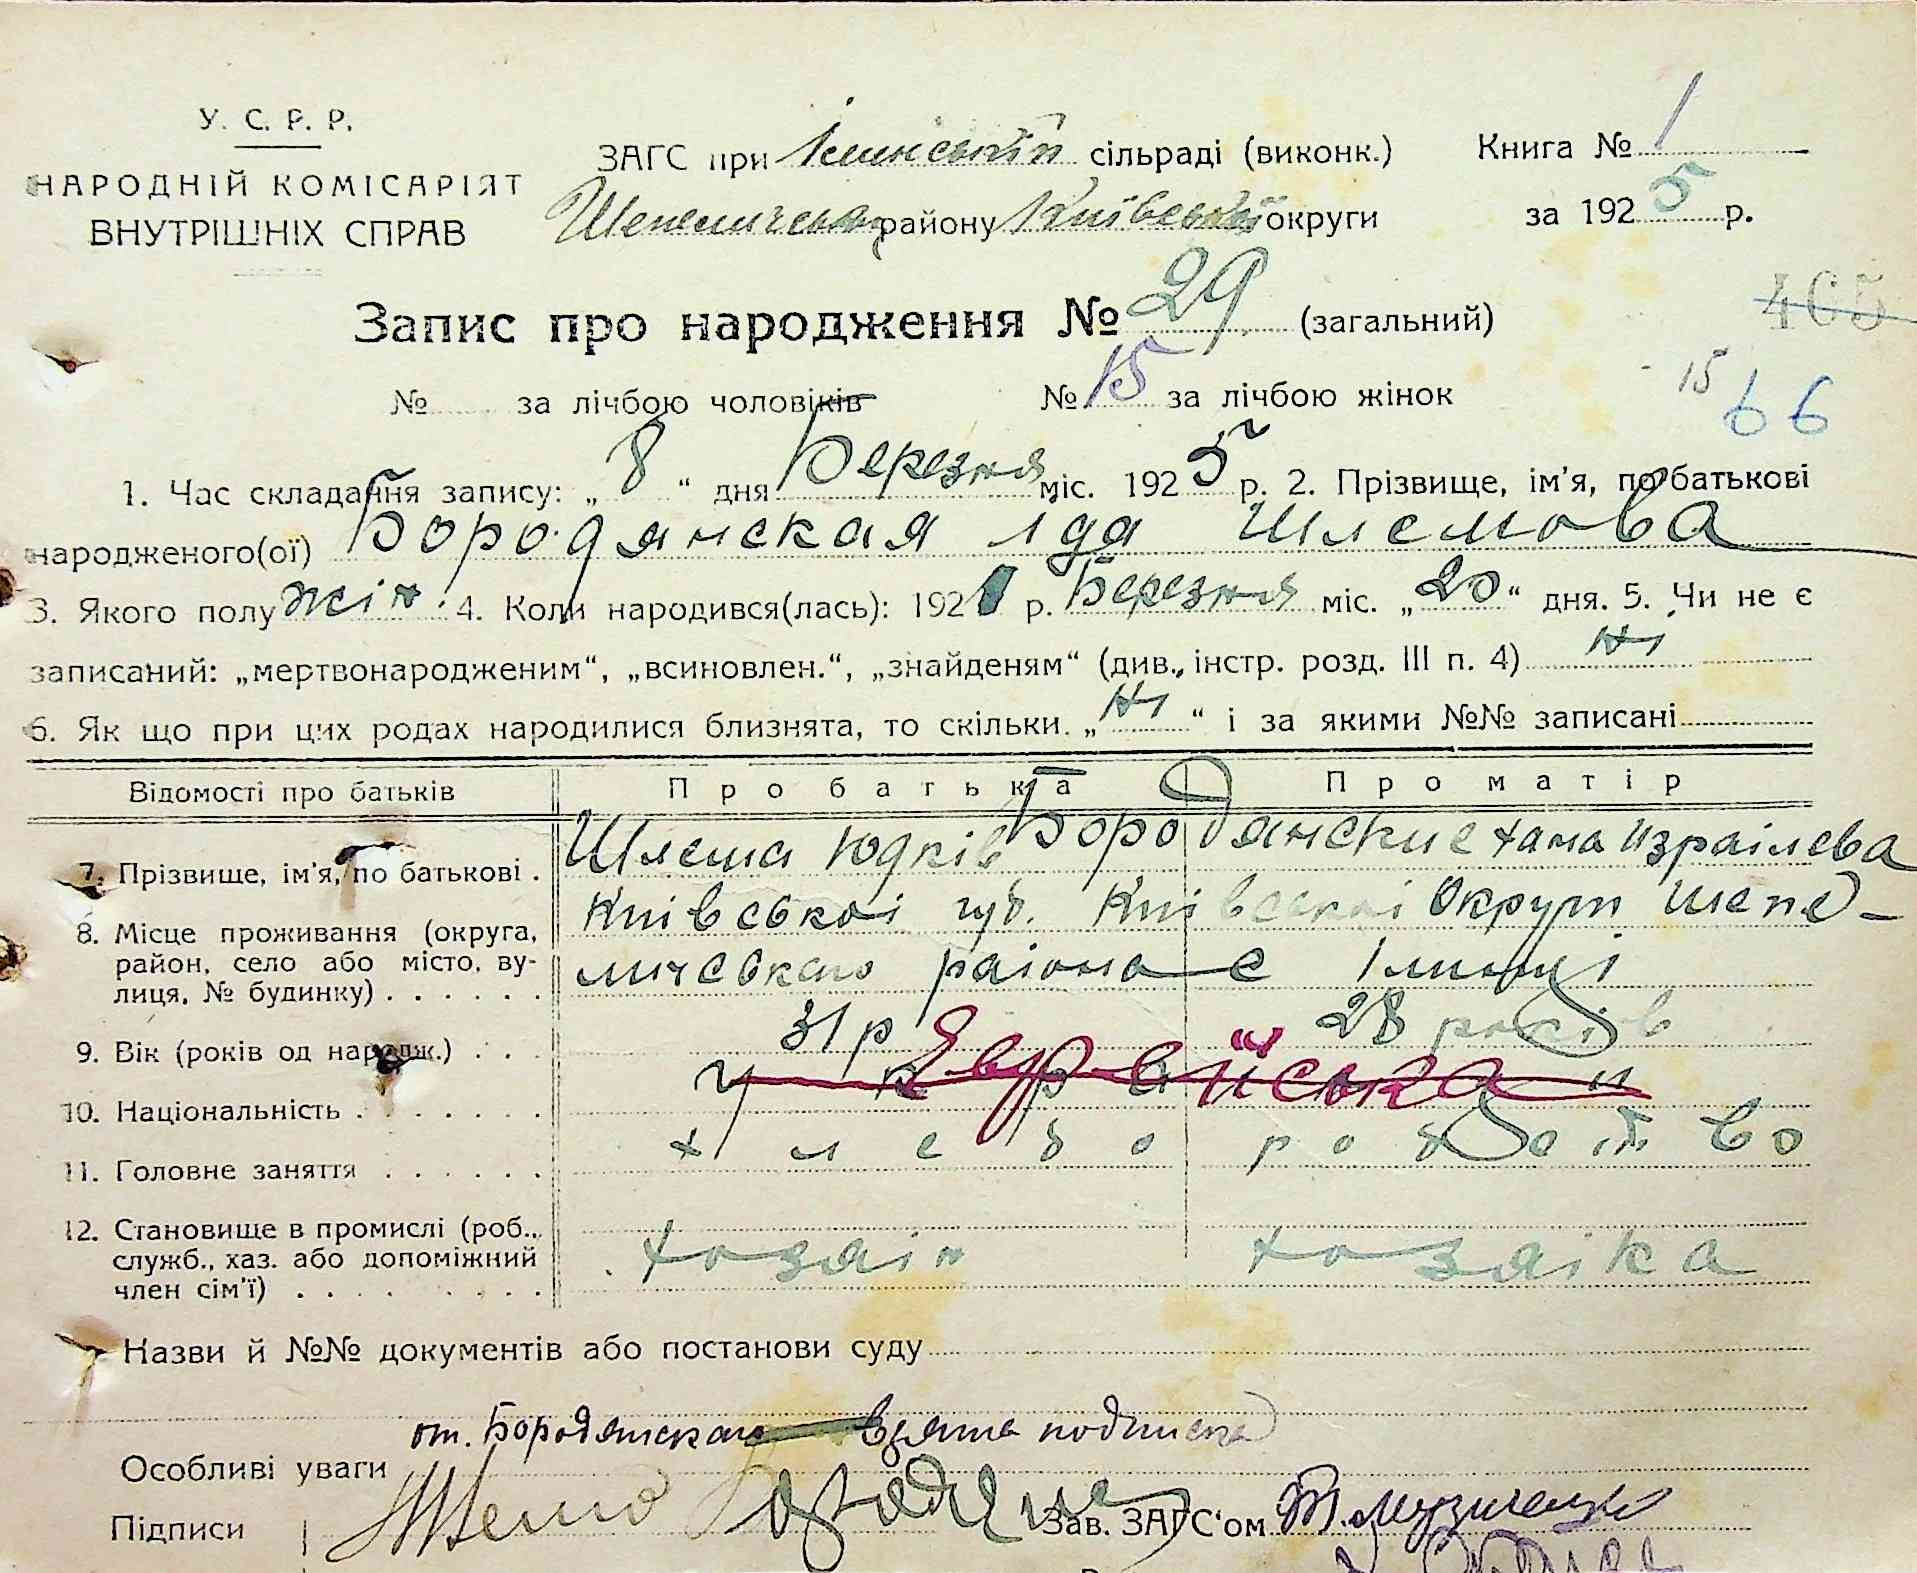 У. С. Р. Р.
НАРОДНІЙ КОМІСАРІЯТ
ВНУТРІШНІХ СПРАВ
ЗАГС при сільраді (виконк.)
району Київської округи
Книга № 1
за 1925 р.
Запис про народження № 29 (загальний)
465
№ за лічбою чоловіків № 15 за лічбою жінок
15 66
1. Час складання запису: „ 8 “ дня Березня міс. 1925 р. 2. Прізвище, ім'я, по батькові
народженого(ої) Бородянская Ида Шлемова
3. Якого полу жін. 4. Коли народився(лась): 192 р. Березня міс. „20“ дня. 5. Чи не є
записаний: „мертвонародженим“, „всиновлен.“, „знайденям“ (див. інстр. розд. III п. 4) ні
6. Як що при цих родах народилися близнята, то скільки. „ ні “ і за якими №№ записані
Відомості про батьків Про батька Про матір
7. Прізвище, ім'я, по батькові . Шлема Юдків Бородянские хана Израілева
8. Місце проживання (округа, район, село або місто, вулиця, № будинку) . . . . . . Київської губ. Київської Округи Шепе-
личевскаго района с
9. Вік (років од народж.) . . . 31 р 28 років
10. Національність . . . . . . . Єврейська
11. Головне заняття . . . . . . хлеборобство
12. Становище в промислі (роб., служб., хаз. або допоміжний член сім'ї) . . . . . . . . . хозаін хозяіка
Назви й №№ документів або постанови суду
от. Бородянскаго взята подписка
Особливі уваги
Підписи Зав. ЗАГС'ом